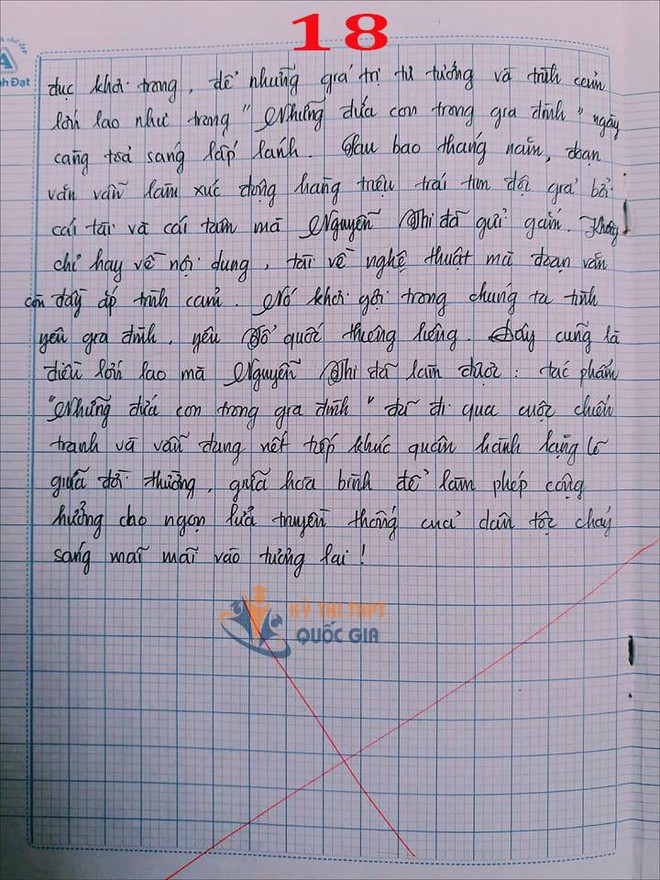 18
h Đạt
đục khơi trong, để những giá trị tư tưởng và tình cảm
lớn lao như trong "Những đứa con trong gia đình" ngày
càng toả sáng lấp lánh. Sau bao tháng năm, đoạn
văn vẫn làm xúc động hàng triệu trái tim độc giả bởi
cái tài và cái tâm mà Nguyễn Thi đã gửi gắm. Không
chỉ hay về nội dung, tài về nghệ thuật mà đoạn văn
còn đầy ắp tình cảm. Nó khơi gợi trong chúng ta tình
yêu gia đình, yêu Tổ quốc thương liêng. Đây cũng là
điều lớn lao mà Nguyễn Thi đã làm được: tác phẩm
"Những đứa con trong gia đình" dù đi qua cuộc chiến
tranh và vẫn đang viết tiếp khúc quân hành lặng lẽ
giữa đời thường, giữa hoà bình để làm phép cộng
hưởng cho ngọn lửa truyền thống của dân tộc cháy
sáng mãi mãi vào tương lai!
KỲ THI THPT
QUỐC GIA